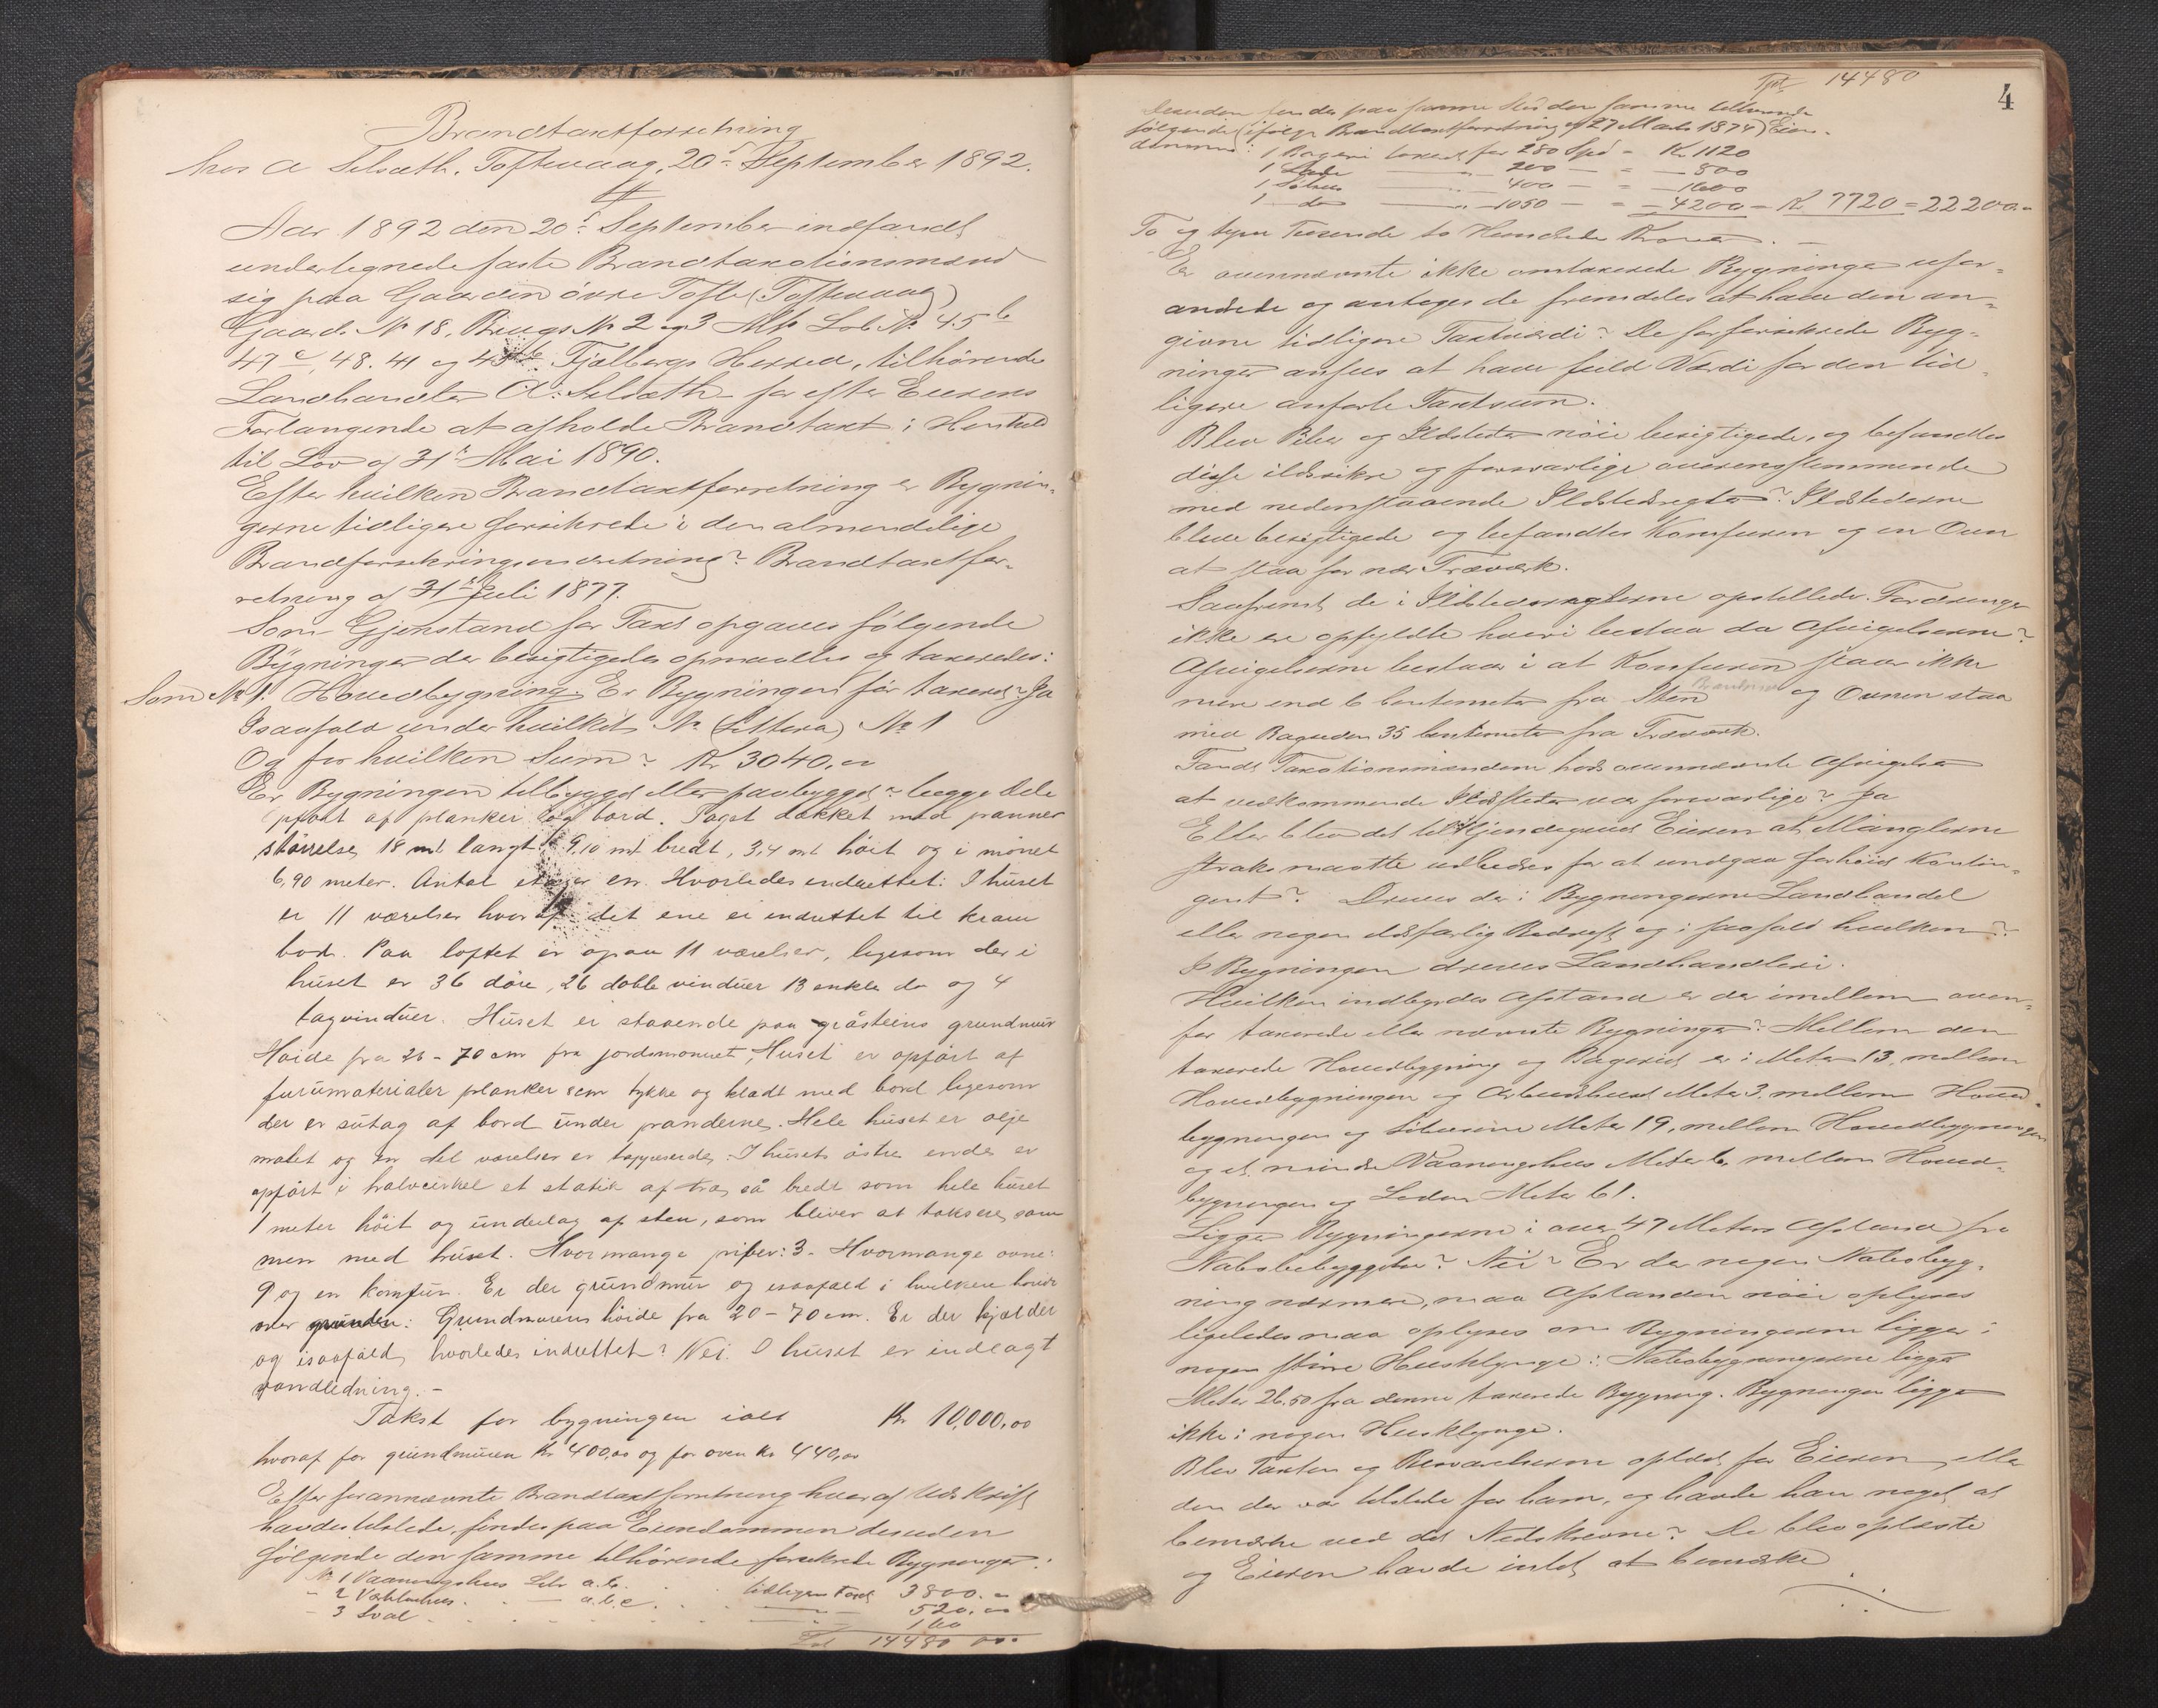 Brandtaxtforretning
hos A Selsæth, Toftevaag, 20de September 1892.
Aar 1892 den 20de September indfandt
undertegnede faste Brandtaxtionsmænd
sig paa Gaarden övre Tofte (Toftevaag)
Gaards No 18, Brugs No 2 og 3 Mtr Lob No 45 b
47 c, 48. 41 og Fjelbergs Herred, tilhörende
Landhandler A. Selsæth for efter Eierens
Forlangende at afholde Brandtaxt i Henhold
til Lov af 31te Mai 1890.
Efter hvilken Brandtaxtforretning er Bygnin-
gerne tidligere forsikrede i den almendelige
Brandforsikringsindretning? Brandtaxtfor-
retning af 31te Juli 1877.
Som Gjenstand for Taxt opgaves følgende
Bygninger der besigtigedes opmaaltes og taxeredes:
Som No 1. Hovedbygning. Er Bygningen för taxeret? Ja
Isaafald under hvilket No (Littera) No 1
Og for hvilken Sum? Kr 3040,00
Er Bygningen tilbygget eller paabygget? begge dele
opført af planker og bord. Taget dækket med panner
størrelse 18 mt langt 9,10 mt bredt, 3,4 mt höit og i mönet
6,90 meter. Antal etager en. Hvorledes indrettet: I huset
er 11 værelser hvoraf det ene er indrettet til kram
bod. Paa loftet er ogsaa 11 værelser, ligesom der i
huset er 36 döre, 26 doble vinduer 13 enkle do og 4
tagvinduer. Huset er staaende paa gråsteins grundmur
Höide fra 20 - 70 cm fra jordsmonnet, Huset er opført af
furumaterialer planker 8 cm tykke og klædt med bord ligesom
der er sutag af bord under panderne. Hele huset er olje
malet og en del værelser er tapiserede. I husets östre ende er
opført i halvcirkel et statik af træ så bredt som hele huset
1 meter höit og underlag af sten, som bliver at taksere sam
men med huset. Hvor mange piber: 3. Hvormange ovne:
9 og en komfur. Er der grundmur og isaafald i hvilken höide
over grunden: Grundmurens höide fra 20 - 70 cm. Er der kjælder
og isaafald, hvorledes indrettet? Nei. I huset er indlagt
vandledning. -
Takst for bygningen ialt Kr 10,000,00
hvoraf for grundmuren Kr 400,00 og for oven Kr 440,00
Efter forannævnte Brandtaxtforretning hvoraf Udskrift
havdes tilstede, findes paa Eiendommen desuden
følgende den samme tilhörende forsikrede Bygninger:
No 1 Vaaningshus Litr a.b. tidligere Taxt 3800.-
- 2 a.b.c. 520,00
- 3 Sval 160
Tot 14480 00
Tpt 14480
4
desuden findes paa samme Sted den samme tilhørende
følgende (ifølge Brandtaxtforretning af 27 Marts 1874) Eien-
domme:
1 Bageri taxeret for 280 Spd = Kr 1120
1 Lade 200 - = - 800
1 Söhus 400 - = - 1600
1 do 1050 - = - 4200 = K 7720 = 22200.-
To og tyve Tusende to Hundrede Kroner. -
Er ovennævnte ikke omtaxerede Bygninger ufor-
andrede og antages de fremdeles at have den an-
givne tidligere Taxtværdi? De før forsikrede Byg-
ninger ansees at have fuld Værdi for den tid-
ligere anførte Taxtsum.
Blev Piber og Ildsteder nöie besigtigede, og befandtes
disse ildsikre og forsvarlige overensstemmende
med nedenstaaende Ildstedsregler? Ildstederne
bleve besigtigede og befandtes Komfuren og en Ovn
at staa for nær Træværk.
Saafremt de i Ildstedsreglerne opstillede Fordringer
ikke ere opfyldte hvori bestaa da Afvigelserne?
Afvigelserne bestaar i at Komfuren staar ikke
mere end 6 Centimeter fra Sten og Ovnen staa
med Bagsiden 35 Centimeter fra Træværk.
Fandt Taxationsmændene trods ovennævnte Afvigelser
at vedkommende Ildsteder var forsvarlige? Ja
Eller blev det tilkjendegivet Eieren at Manglerne
straks maatte udbedres for at undgaa forhöiet Kontin-
gent? Drives der i Bygningerne Landhandel
eller nogen ildsfarlig Bedrift og i saafald hvilken?
I Bygningen drives Landhandleri.
Hvilken indbyrdes Afstand er der imellem oven-
for taxerede eller nævnte Bygninger? Mellem den
taxerede Hovedbygning og Bageriet er i Meter 13, mellem
Hovedbygningen og Meter 3, mellem Hoved-
bygningen og Söhusene Meter 19, mellem Hovedbygningen
og et mindre Vaaningshus Meter 6, mellem Hoved-
bygningen og Laden Meter 61.
Ligger Bygningerne i over 47 Meters Afstand fra
Nabobebyggelse? Nei? Er der nogen Nabobyg-
ning nærmere, maa Afstanden nöie oplyses
ligeledes maa oplyses om Bygningerne ligger i
nogen större Husklynge: Nabobygningerne ligger
Meter 26.50 fra denne taxerede Bygning. Bygningen ligger
ikke i nogen Husklynge.
Blev Taxten og Besvarelserne oplæst for Eieren eller
den der var tilstede for ham, og havde han noget at
bemærke ved det Nedskrevne? De blev oplæste
og Eieren havde intet at bemærke